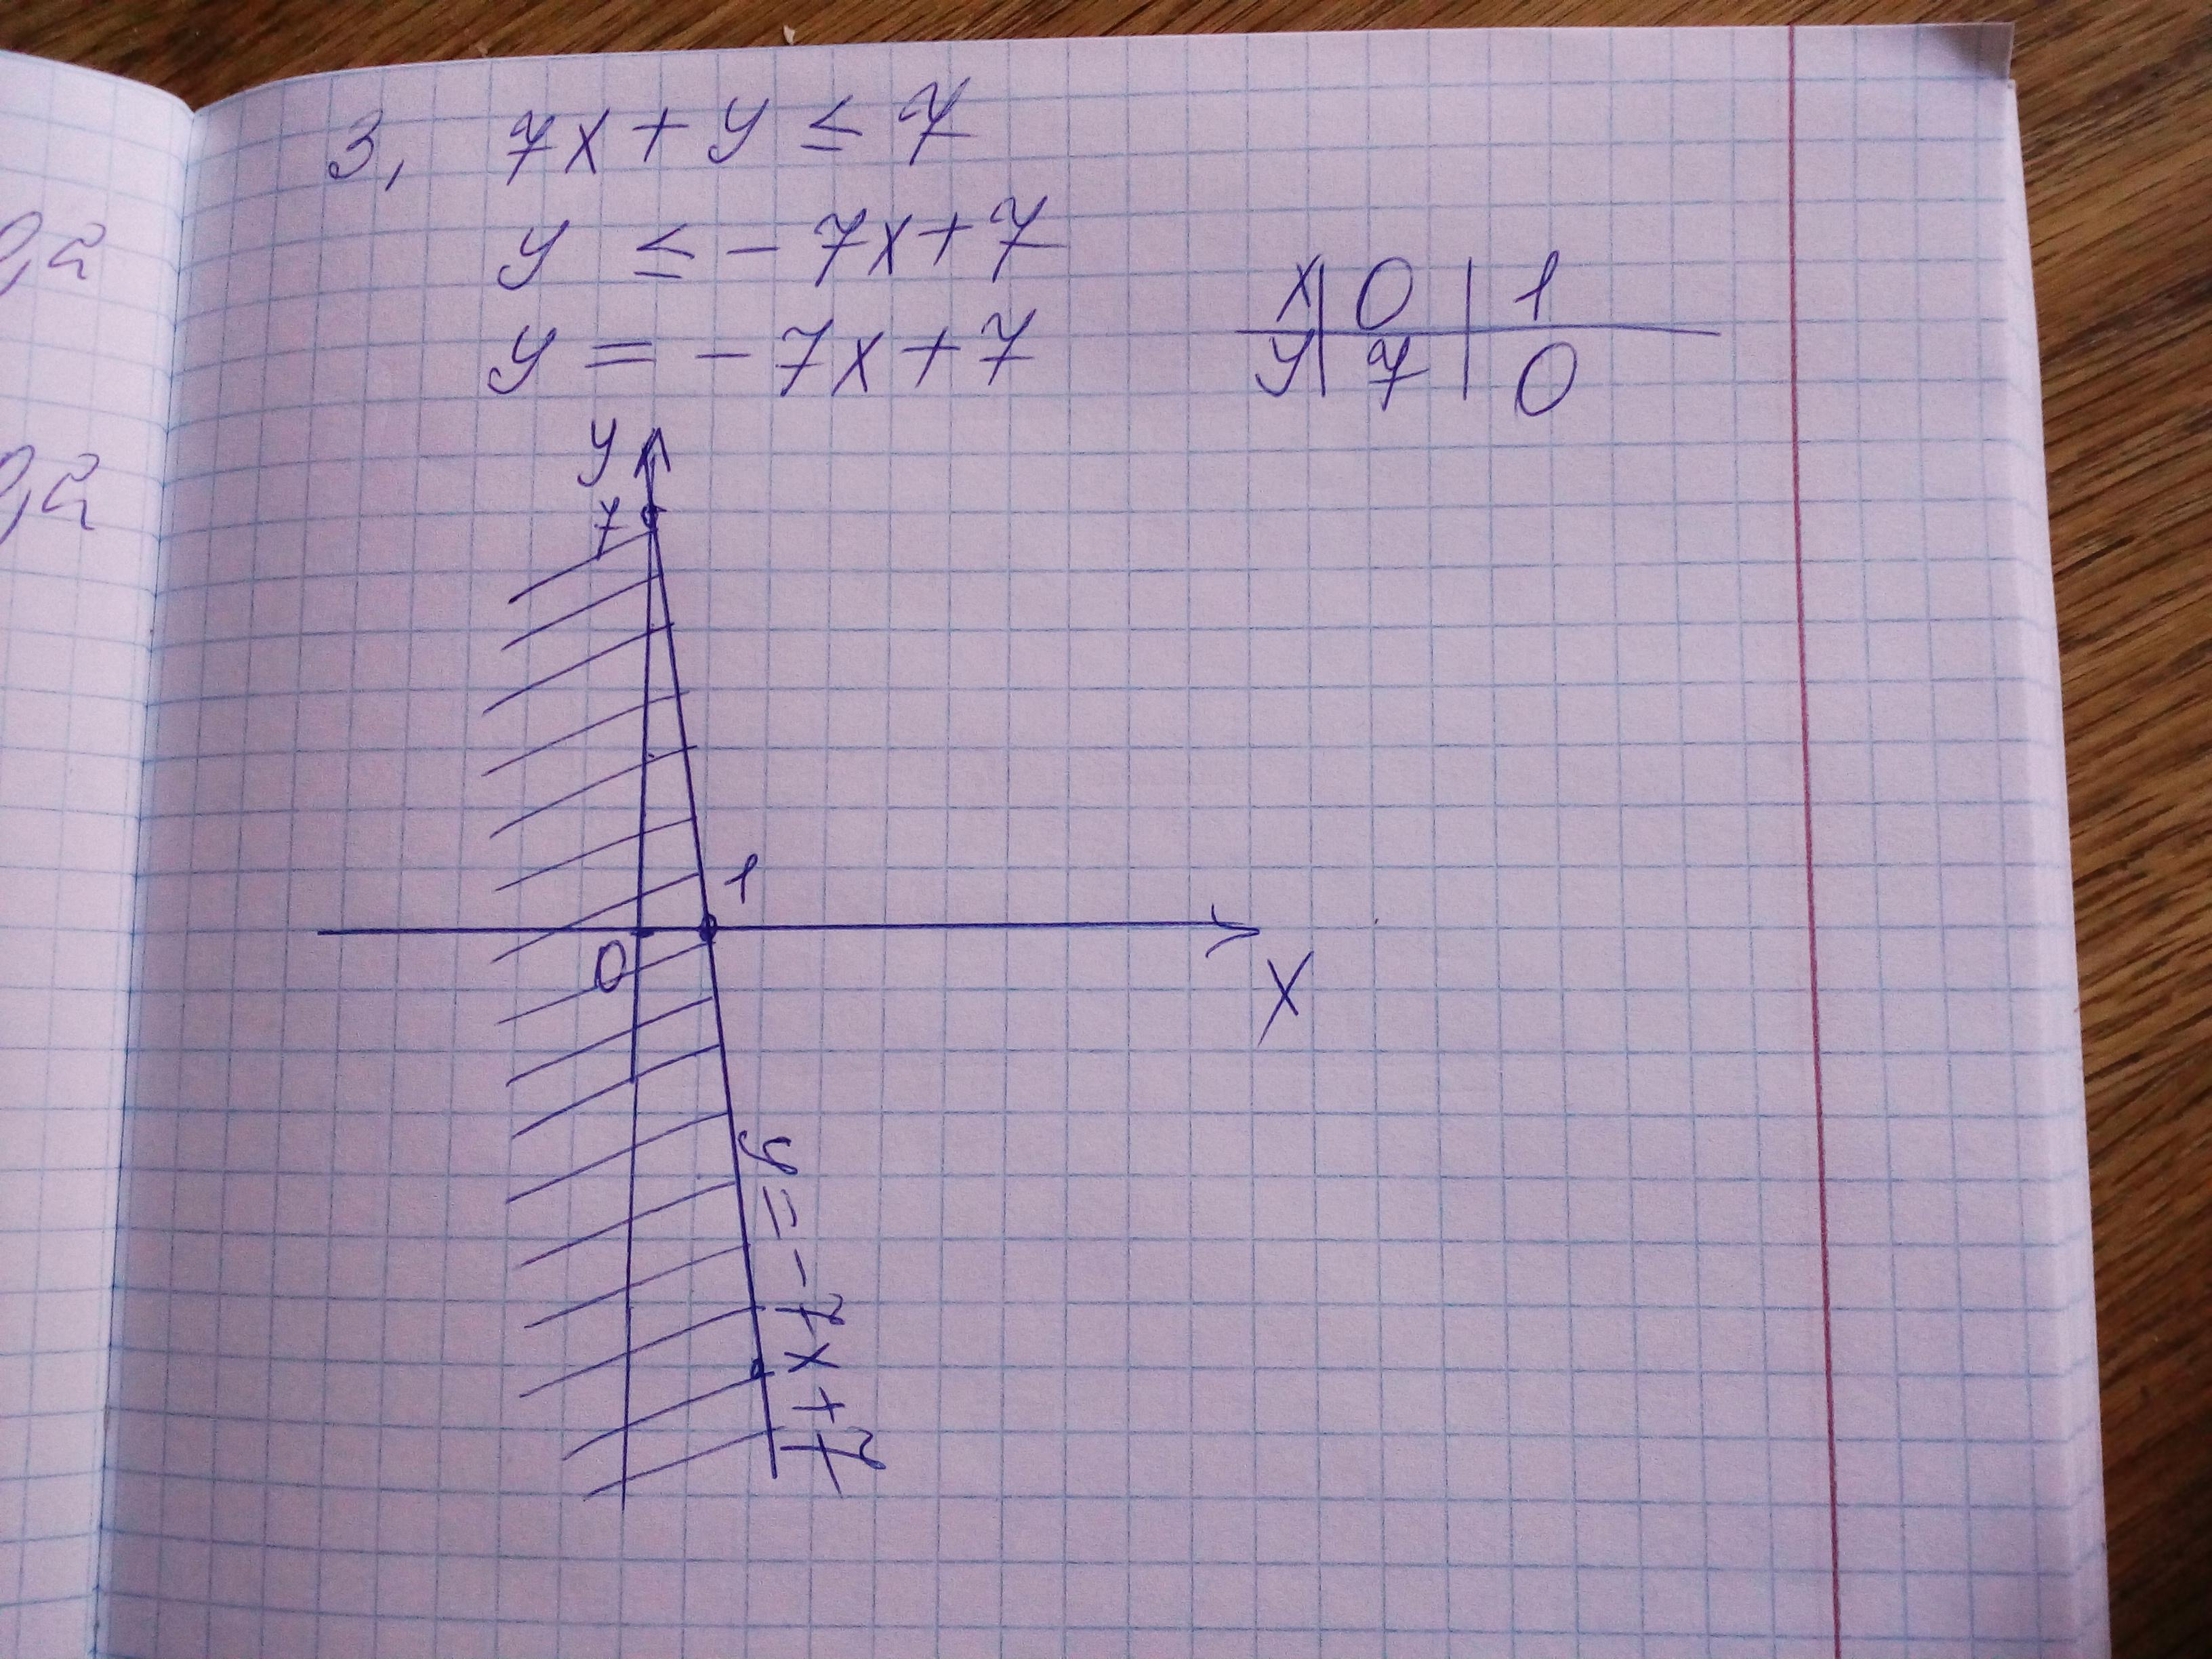 3, 7x + y ≤ 7
y ≤ - 7x + 7
y = - 7x + 7
x | 0 | 1
y | 7 | 0
y
7
1
0
x
y = - 7x + 7